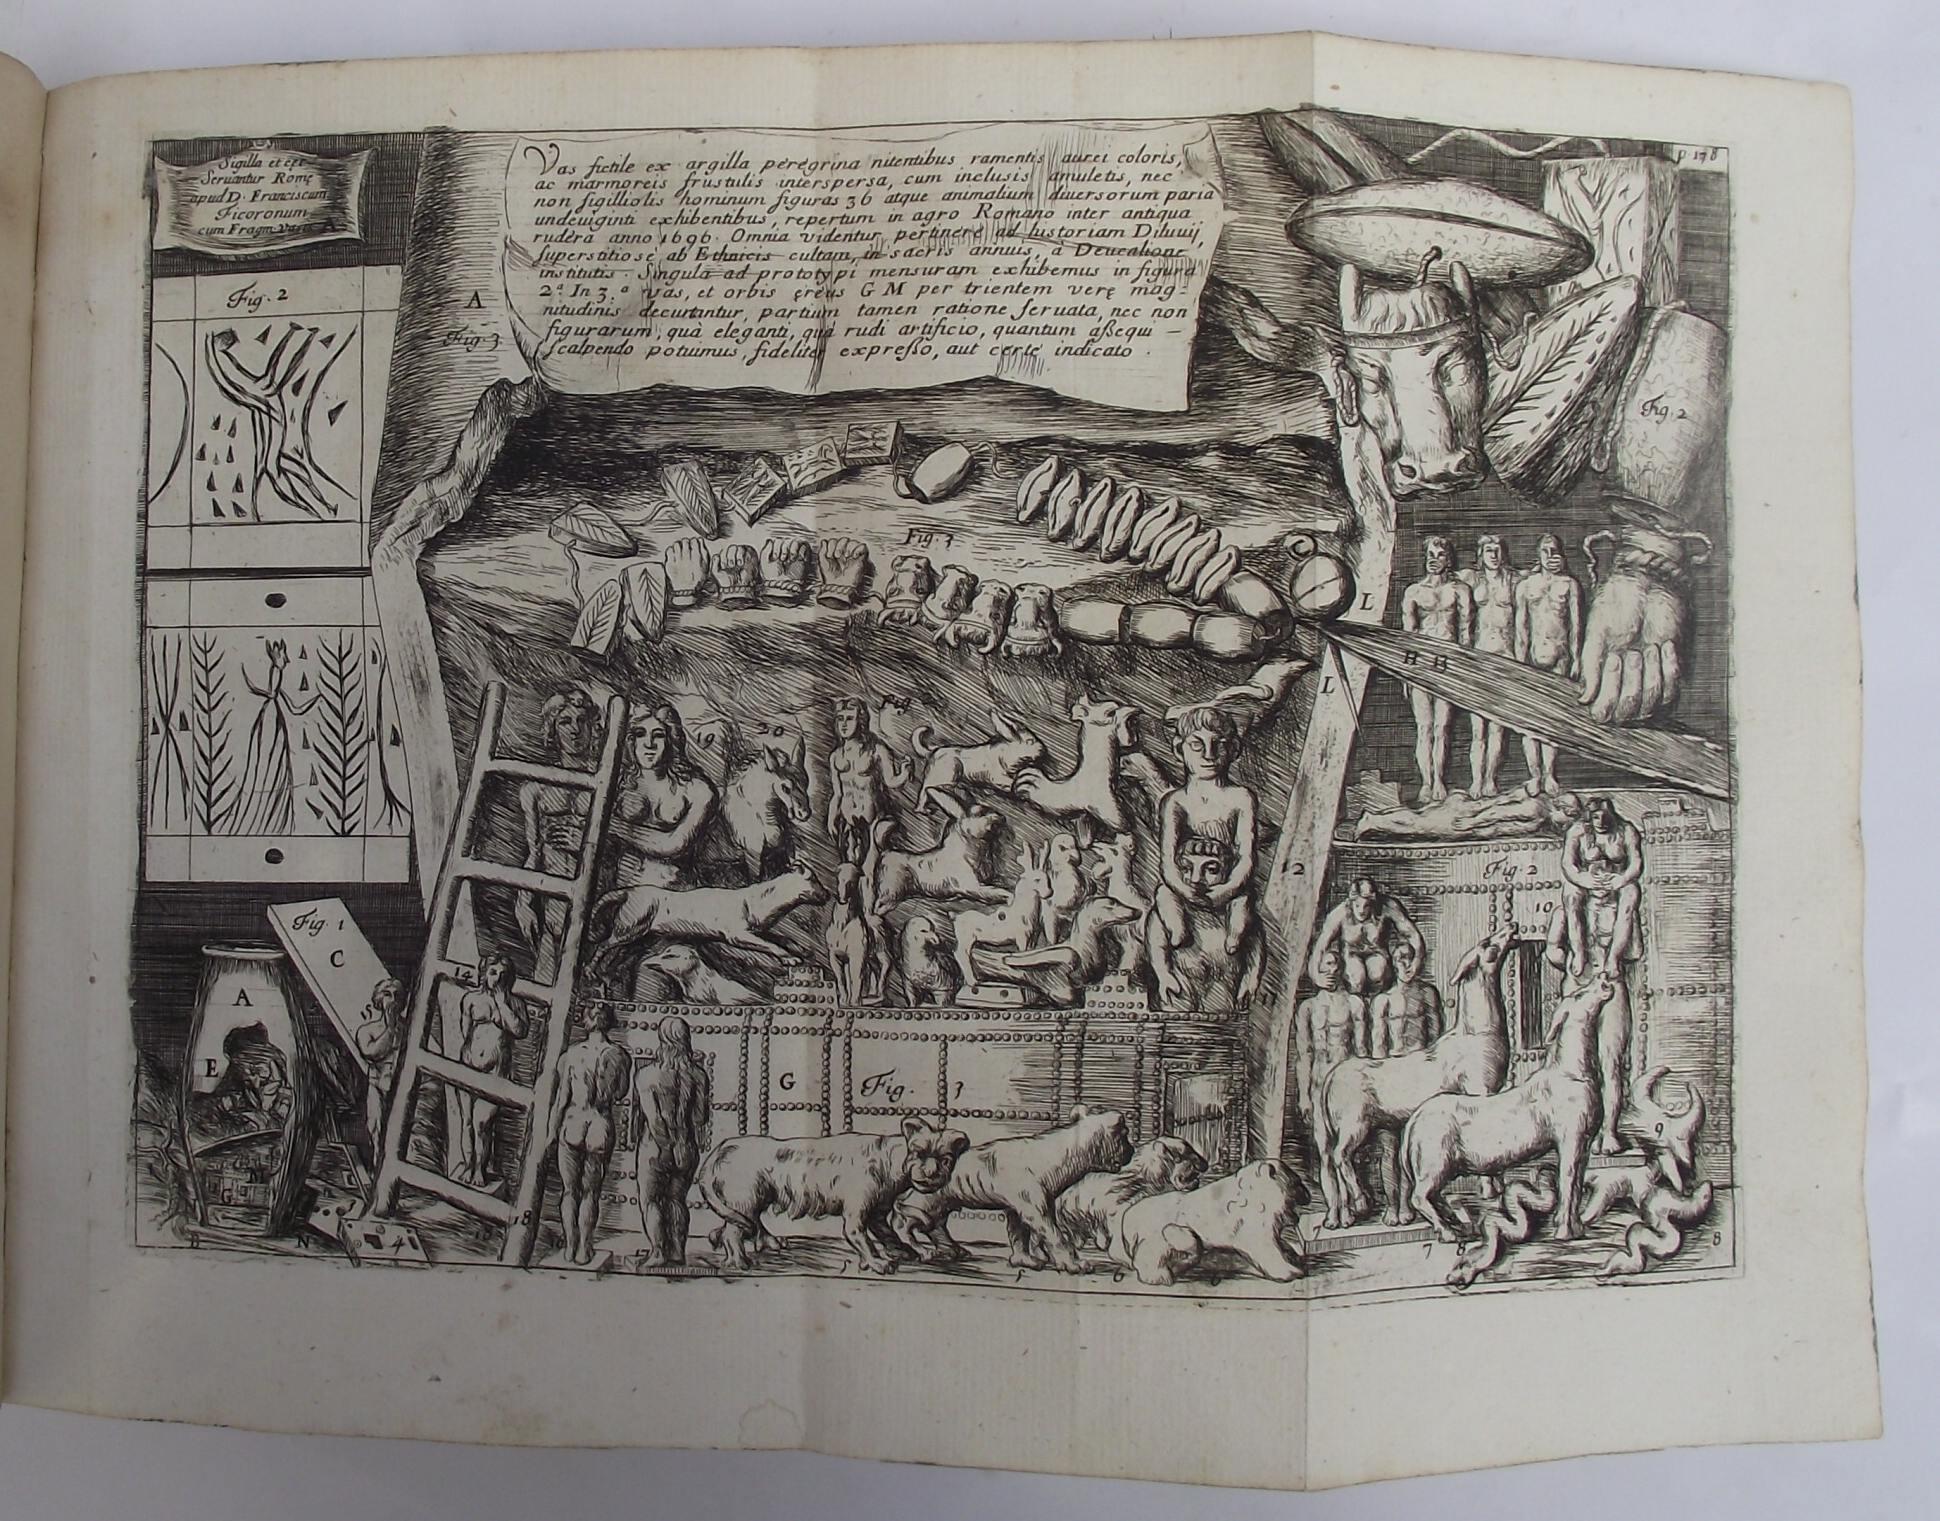 Sigilla et cet
Seruantur Romę
apud D. Franciscum
Ficoronum
cum Fragm. Vasis A
Vas fictile ex argilla peregrina nitentibus ramentis aurei coloris,
ac marmoreis frustulis interspersa, cum inclusis amuletis, nec
non sigilliolis hominum figuras 36 atque animalium diuersorum paria
undeuiginti exhibentibus, repertum in agro Romano inter antiqua
rudera anno 1696. Omnia videntur pertinere ad historiam Diluuij,
superstitiose ab Ethnicis cultam, in sacris annuis, à Deucalione
institutis. Singula ad prototypi mensuram exhibemus in figura
2ᵃ. In 3.ᵃ vas, et orbis ęreus G M per trientem verę mag-
nitudinis decurtantur, partium tamen ratione seruata, nec non
figurarum, quà eleganti, quà rudi artificio, quantum assequi
scalpendo potuimus, fideliter expresso, aut certe indicato.
p. 178
Fig. 2
A
Fig. 3
Fig. 2
Fig. 3
L
H B
L
Fig
19 20
12
Fig. 2
10
Fig. 1
C
A
E
14
15
11
G Fig. 3
9
G M
4
B N
18
17
5 5 6 6
7 7 8 8